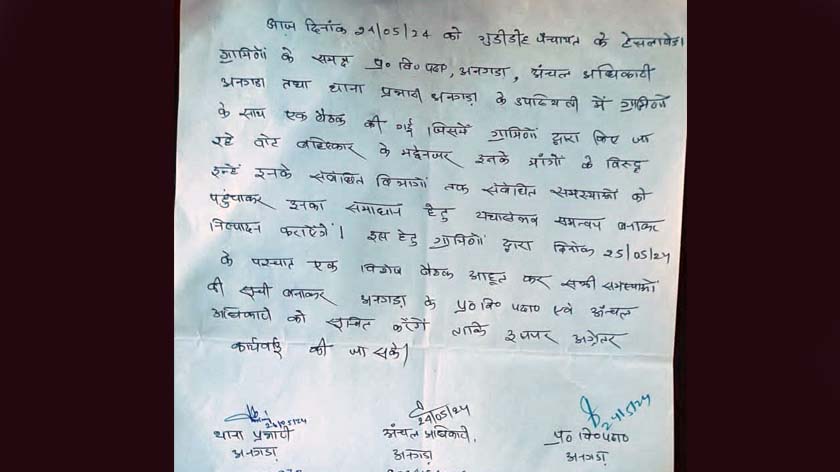 आज दिनांक 24/05/24 को गुडीडीह पंचायत के टेसलाबेड़ा
ग्रामिणों के समक्ष प्र० वि० पदा०, अनगडा, अंचल अधिकारी
अनगडा तथा थाना प्रभारी अनगड़ा के उपस्थिती में ग्रामिणों
के साथ एक बैठक की गई जिसमें ग्रामिणों द्वारा किए जा
रहे वोट बहिष्कार के मद्देनजर इनके मांगों के विरूद्ध
इन्हें इनके संबंधित विभागों तक संबंधित समस्याओं को
पहुंचाकर इनका समाधान हेतु यथासंभव समन्वय बनाकर
निष्पादन कराऐंगे। इस हेतु ग्रामिणों द्वारा दिनांक 25/05/24
के पश्चात एक विशेष बैठक आहूत कर सभी समस्याओं
की सूची बनाकर अनगड़ा के प्र० वि० पदा० एवं अंचल
अधिकारी को सूचित करेंगे ताकि इसपर अग्रेतर
कार्यवाई की जा सके।
24/05/24
थाना प्रभारी
अनगड़ा
24/05/24
अंचल अधिकारी,
अनगड़ा
24/5/24
प्र० वि० पदा०
अनगड़ा